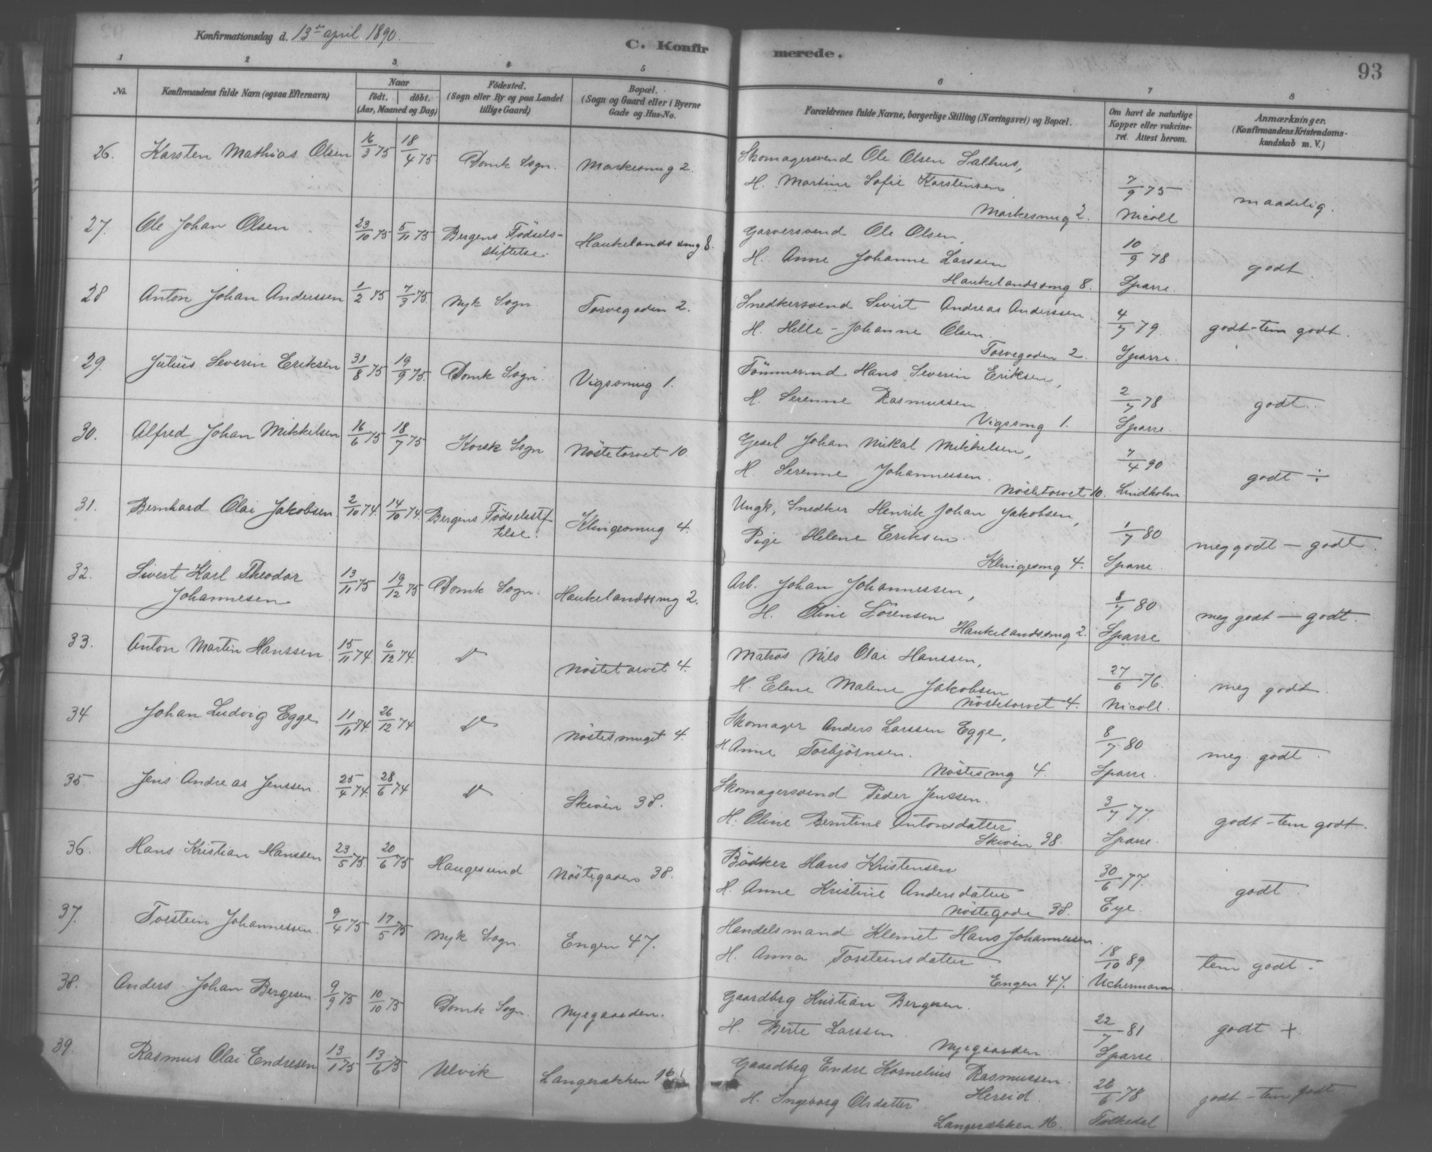 Konfirmationsdag d. 13de april 1890.
C. Konfirmerede.
93
1 2 3 4 5 6 7 8
No.
Konfirmandens fulde Navn (ogsaa Efternavn)
Naar
født. døbt.
(Aar, Maaned og Dag)
Fødested.
(Sogn eller By og paa Landet
tillige Gaard)
Bopæl.
(Sogn og Gaard eller i Byerne
Gade og Hus-No.
Forældrenes fulde Navne, borgerlige Stilling (Næringsvei) og Bopæl.
Om havt de naturlige
Kopper eller vakcine-
ret. Attest herom.
Anmærkninger.
(Konfirmandens Kristendoms-
kundskab m. V.)
26. Karsten Mathias Olsen 16/3 75 18/4 75 Domk Sogn. Markesmug 2.
Skomagersvend Ole Olsen
H. Martine Sofie Karstensen
Markesmug 2.
7/9 75
Nicoll
maadelig.
27. Ole Johan Olsen 23/10 75 5/11 75 Bergens Fødsels-
stiftelse. Haukelandssmug 8.
Garversvend Ole Olsen,
H. Anne Johanne Larssen
Haukelandssmug 8.
10/9 78
Sparre.
godt.
28 Anton Johan Anderssen 1/2 75 7/3 75 Nyk Sogn Torvegaden 2.
Snedkersvend Sivert Andreas Anderssen.
H. Helle-Johanne Olsen
Torvegaden 2.
4/7 79.
Sparre.
godt-tem godt.
29. Julius Severin Eriksen 31/8 75 19/9 75. Domk Sogn. Vigssmug 1.
Tømmermd Hans Severin Eriksen,
H. Serenne Rasmussen
Vigssmg 1.
2/7 78
Sparre
godt.
30. Alfred Johan Mikkelsen 16/6 75 18/7 75 Korsk Sogn Nøstetorvet 10
Gesel Johan Nikal Mikkelsen,
H. Serenne Johannessen.
Nøstetorvet 10.
7/4 90
Lindholm
godt ÷
31. Bernhard Olai Jakobsen 2/10 74 14/10 74. Bergens Fødselsstif
telse. Klingesmug 4.
Ungk, Snedker Henrik Johan Jakobsen,
Pige Helene Eriksen.
Klingesmg 4.
1/7 80
Sparre
meg godt — godt.
32. Sivert Karl Theodor
Johannesen 13/11 75 19/12 75 Domk Sogn. Haukelandssmug 2.
Arb. Johan Johannessen,
H. Oline Sørensen
Haukelandssmug 2.
8/7 80
Sparre
meg godt — godt.
33. Anton Martin Hanssen 15/11 74 6/12 74. do Nøstetorvet 4.
Matros Nils Olai Hanssen,
H. Elene Malene Jakobsen
Nøstetorvet 4.
27/6 76.
Nicoll.
meg godt
34 Johan Ludvig Egge 11/11 74 26/12 74 do Nøstesmuget 4.
Skomager Anders Larssen Egge,
H Anne Torbjørnsen.
Nøstesmg 4.
8/7 80
Sparre.
meg godt.
35. Jens Andreas Jenssen 25/4 74 28/6 74 do Skiven 38.
Skomagersvend Peder Jenssen.
H. Oline Berntine Antonsdatter
Skiven 38.
3/7 77.
Sparre.
godt-tem godt.
36. Hans Kristian Hanssen 23/5 75 20/6 75 Haugesund Nøstegaden 38.
Bødker Hans Kristensen
H. Anne Kristine Andersdatter
Nøstegade 38.
30/6 77.
Eye.
godt.
37. Torstein Johannessen 9/4 75 17/5 75 Nyk Sogn Engen 47.
Handelsmand Klemet Hans Johannessen.
H. Anna Torsteinsdatter
Engen 47.
18/10 89
Uchermann.
tem godt.
38. Anders Johan Bergesen 9/9 75 10/10 75 Domk Sogn Nyegaarden.
Gaardbrg Kristian Bergesen.
H. Berte Larssen
Nyegaarden
22/7 81
Sparre
godt +
39. Rasmus Olai Endresen 13/1 75 13/6 75 Ulvik Langerækken 16.
Gaardbrg Endre Kornelius Rasmussen.
Hereid.
H. Ingeborg Olsdatter
Langerækken 16.
26/6 78
Folkedal
godt-tem godt